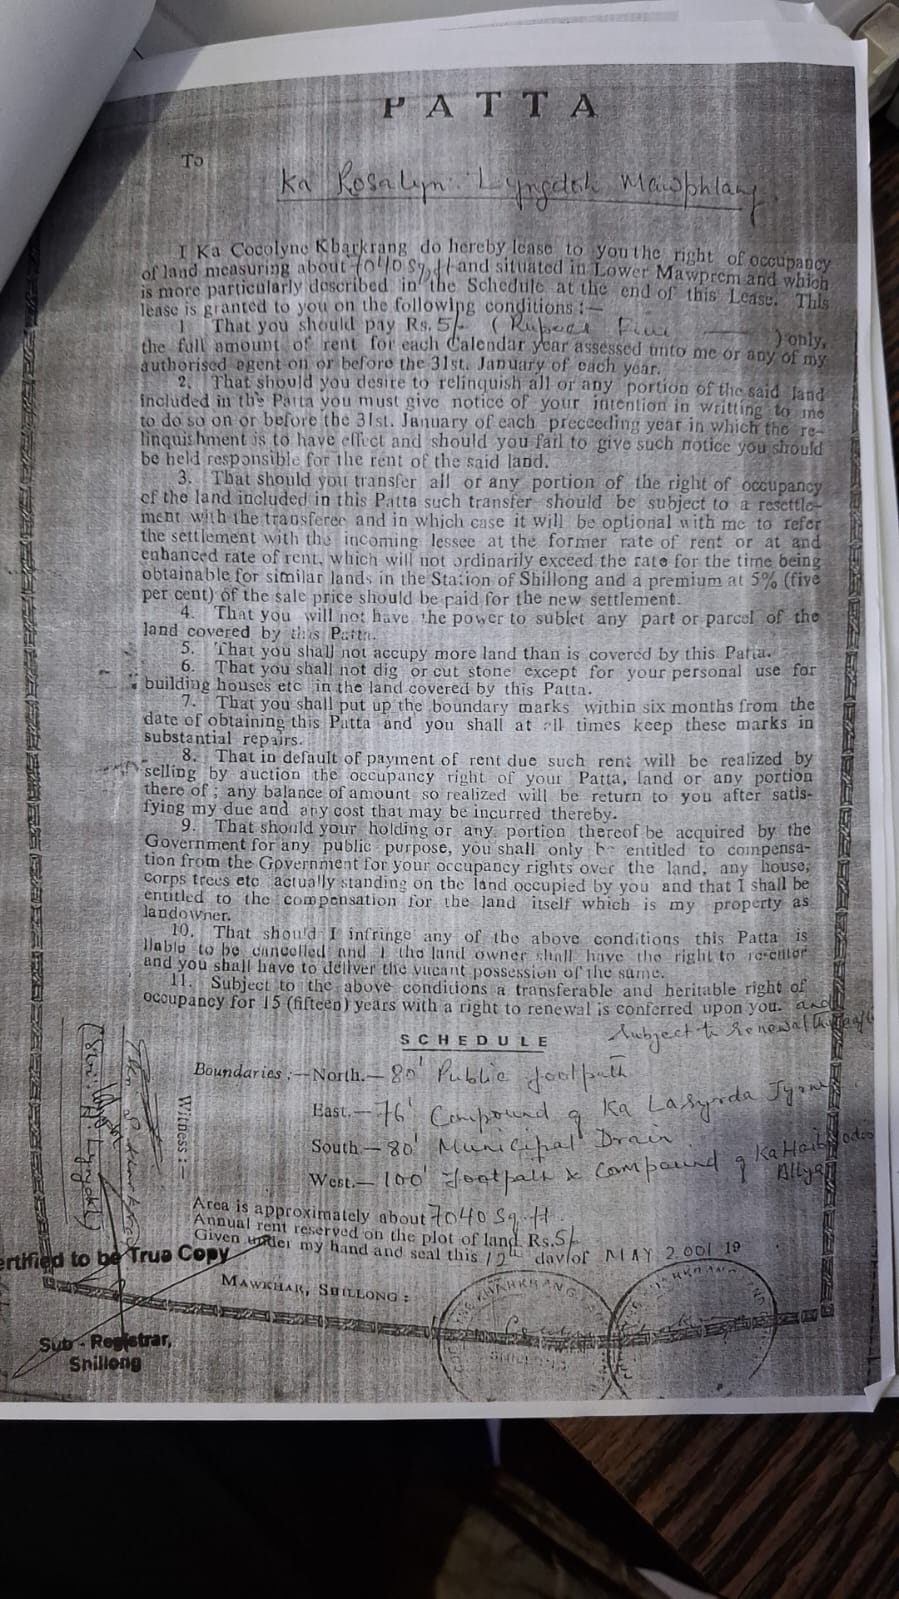 PATTA
To
Ka Rosalyn Lyngdoh Mawphlang.
I Ka Cocolyne Kharkrang do hereby lease to you the right of occupancy
of land measuring about 7040 Sq. ft and situated in Lower Mawprem and which
is more particularly described in the Schedule at the end of this Lease. This
lease is granted to you on the following conditions :—
1 That you should pay Rs. 5/- ( Rupees Five — ) only,
the full amount of rent for each Calendar year assessed unto me or any of my
authorised agent on or before the 31st. January of each year.
2. That should you desire to relinquish all or any portion of the said land
included in the Patta you must give notice of your intention in writting to me
to do so on or before the 31st. January of each preceeding year in which the re-
linquishment is to have effect and should you fail to give such notice you should
be held responsible for the rent of the said land.
3. That should you transfer all or any portion of the right of occupancy
of the land included in this Patta such transfer should be subject to a resettle-
ment with the transferee and in which case it will be optional with me to refer
the settlement with the incoming lessee at the former rate of rent or at and
enhanced rate of rent, which will not ordinarily exceed the rate for the time being
obtainable for similar lands in the Station of Shillong and a premium at 5% (five
per cent) of the sale price should be paid for the new settlement.
4. That you will not have the power to sublet any part or parcel of the
land covered by this Patta.
5. That you shall not accupy more land than is covered by this Patta.
6. That you shall not dig or cut stone except for your personal use for
building houses etc in the land covered by this Patta.
7. That you shall put up the boundary marks within six months from the
date of obtaining this Patta and you shall at all times keep these marks in
substantial repairs.
8. That in default of payment of rent due such rent will be realized by
selling by auction the occupancy right of your Patta, land or any portion
there of ; any balance of amount so realized will be return to you after satis-
fying my due and any cost that may be incurred thereby.
9. That should your holding or any portion thereof be acquired by the
Government for any public purpose, you shall only be entitled to compensa-
tion from the Government for your occupancy rights over the land, any house,
corps trees etc actually standing on the land occupied by you and that I shall be
entitled to the compensation for the land itself which is my property as
landowner.
10. That should I infringe any of the above conditions this Patta is
liable to be cancelled and I the land owner shall have the right to re-enter
and you shall have to deliver the vacant possession of the same.
11. Subject to the above conditions a transferable and heritable right of
occupancy for 15 (fifteen) years with a right to renewal is conferred upon you. and
Subject to renewal
SCHEDULE
Boundaries :—North.— 80' Public footpath
East.— 76' Compound of Ka Lasynda
South.— 80' Municipal Drain.
West.— 100' Footpath & Compound of Ka
Witness :—
Area is approximately about 7040 Sq. ft.
Annual rent reserved on the plot of land Rs. 5/-
Given under my hand and seal this 12th day of MAY 2001 19
MAWKHAR, SHILLONG :
Certified to be True Copy
Sub - Registrar,
Shillong